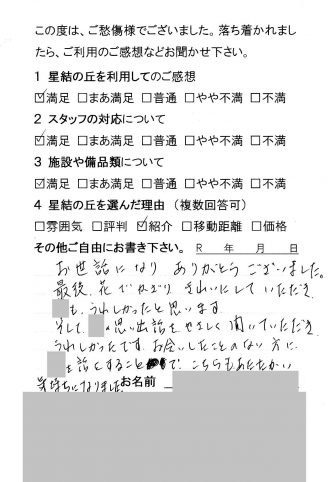 この度は、ご愁傷様でございました。落ち着かれまし
たら、ご利用のご感想などお聞かせ下さい。
1 星結の丘を利用してのご感想
☑満足 □まあ満足 □普通 □やや不満 □不満
2 スタッフの対応について
☑満足 □まあ満足 □普通 □やや不満 □不満
3 施設や備品類について
☑満足 □まあ満足 □普通 □やや不満 □不満
4 星結の丘を選んだ理由（複数回答可）
□雰囲気 □評判 ☑紹介 □移動距離 □価格
その他ご自由にお書き下さい。 R 年 月 日
お世話になり ありがとうございました。
最後、花でかざり きれいにしていただき
も、うれしかったと思います
そして、 の思い出話を やさしく 聞いていただき
うれしかったです。お会いしたことのない方に
を話くすること で、こちらもあたたかい
気持ちになりました。
お名前